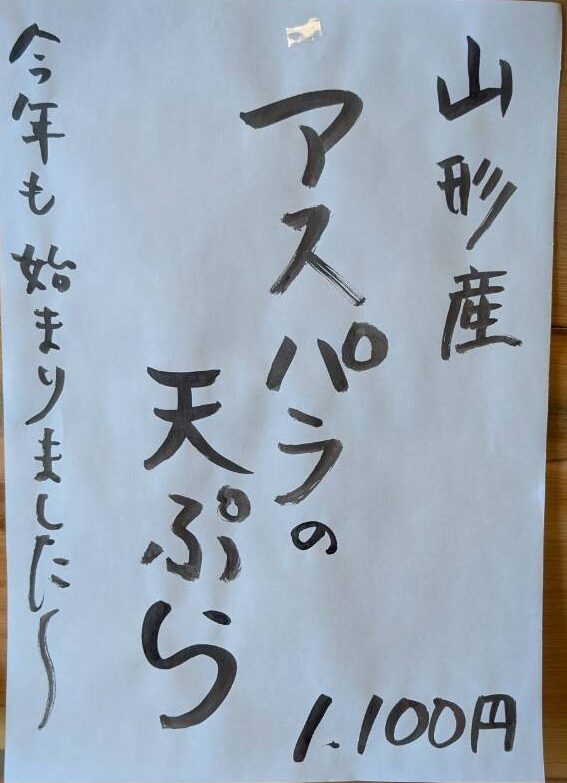 山形産
アスパラの
天ぷら
1.100円
今年も始まりました〜